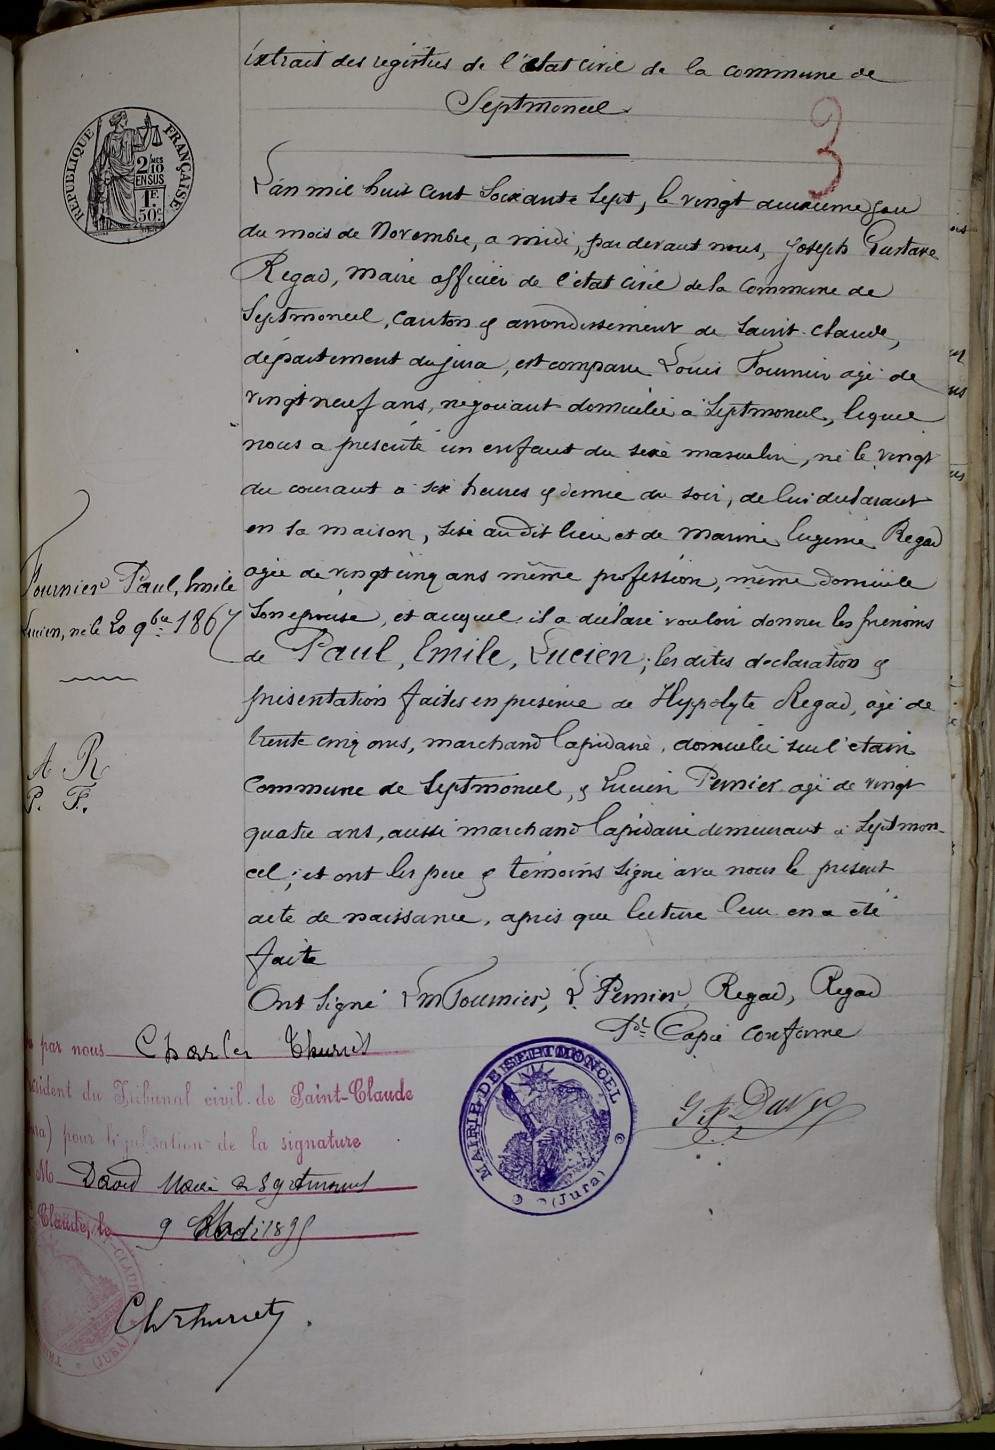 Extrait des registres de l'état civil de la commune de
Septmoncel
3
REPUBLIQUE FRANÇAISE
2/10 MES
EN SUS
1F.
50c
L'an mil huit cent soixante sept, le vingt deuxieme jour
du mois de Novembre, a midi, par devant nous, Joseph Gustave
Regad, maire officier de l'état civil de la commune de
Septmoncel, canton & arrondissement de Saint-Claude,
département du jura, est comparu Louis Fournier agé de
vingt neuf ans, negociant domicilié à Septmoncel, lequel
nous a presenté un enfant du sexe masculin, né le vingt
du courant a six heures & demie du soir, de lui déclarant
en sa maison, sise au dit lieu et de Marine Eugenie Regad
agée de vingt cinq ans même profession, même domicile
son epouse, et auquel il a déclaré vouloir donner les prénoms
de Paul, Emile, Lucien; les dites declaration &
présentation faites en présence de Hyppolyte Regad, agé de
trente cinq ans, marchand lapidaire, domicilié sur l'étain
commune de Septmoncel, & Lucien Pernier agé de vingt
quatre ans, aussi marchand lapidaire demeurant à Septmon-
cel; et ont les pere & témoins signé avec nous le présent
acte de naissance, après que lecture leur en a été
faite
Fournier Paul, Emile
Lucien, né le 20 9bre 1867
A R
P. F.
Ont signé Lm Fournier, L Pernier, Regad, Regad
Pr Copie conforme
par nous Charles Thuriet
Président du Tribunal civil de Saint-Claude
(Jura) pour législation de la signature
M David Maire de Septmoncel
Claude, le 9 1895
MAIRIE DE SEPTMONCEL
(Jura)
(JURA)
Ch Thuriet